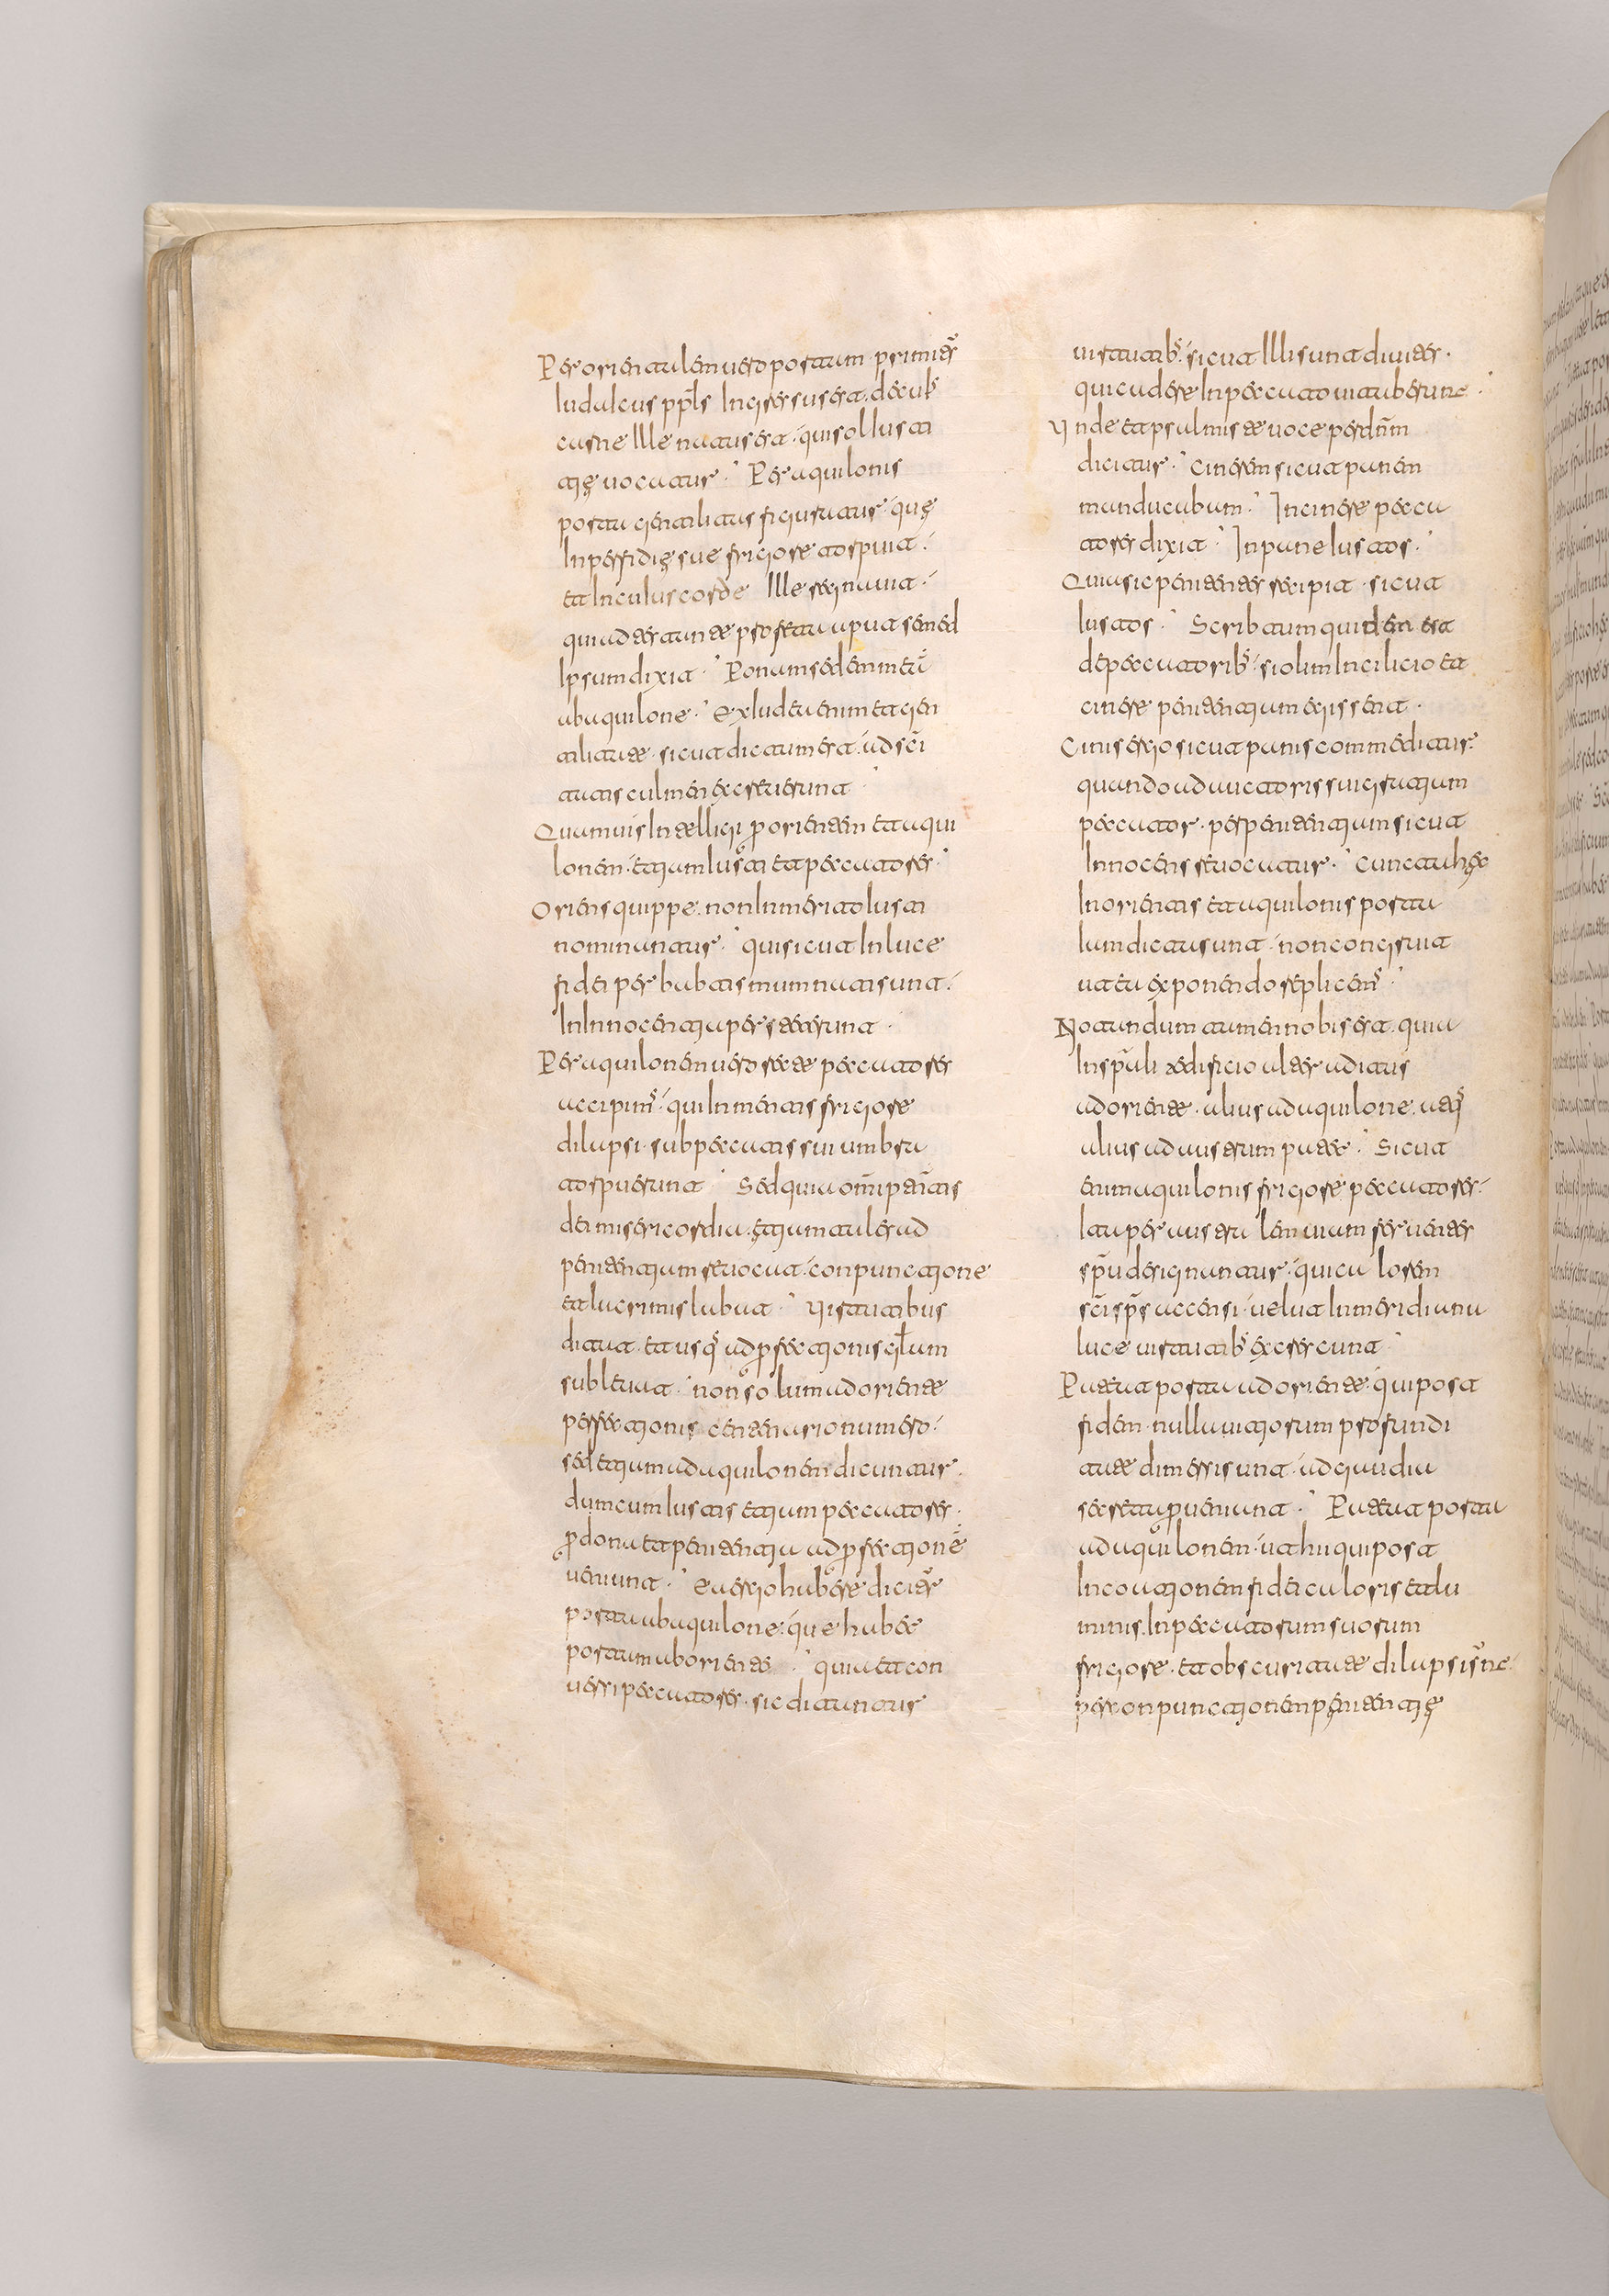 Per orientalem uero portam primitꝰ
Iudaicus ppls Ingressus est. de cuiꝰ
carne Ille natus est. qui sol Iusti
tię uocatur. Per aquilonis
porta gentilitas figuratur. quę
In perfidię sue frigore torpuit.
et In cuius corde Ille regnauit.
qui
Ipsum dixit. Ponam sedem meā
ab aquilone. ex Iudea enim et gen
tilitate. sicut dictum est. ad sci
tatis culmen excreuerunt
Quamuis Intellegi ꝑ orientem et aqui
lonem. etiam Iusti et peccatores.
Oriens quippe. non Inmerito Iusti
nominantur. qui sicut In luce
fidei per babtismum nati sunt.
In Innocentia perstiterunt.
Per aquilonem uero recte peccatores
accipimꝰ. qui In mentis frigore
dilapsi. sub peccatis sui umbra
torpuerunt Sed quia omīptn̄tis
dei misericordia. ętiam tales ad
penitentiam reuocat. conpunctione
et lacrimis labat. Virtutibus
ditat. et usqꝰ ad ꝑfectionis glam
subleuat. non solum ad oriente
perfectionis centenario numero.
sed etiam ad aquilonem dicuntur.
dum cum Iustis etiam peccatores.
ꝓ dona et penitentia ad ꝑfectionē
ueniunt. habere dicitꝰ
porta ab aquilone. que habet
portam ab oriente. quia et con
uersi peccatores. sic ditantur
uirtutibꝰ. sicut Illi sunt diuites.
qui cadere In peccato uitaberunt.
Vnde et psalmista uoce per dnm
dicitur. Cinerem sicut panem
manducabam. In cinere pecca
tores dixit. In pane Iustos.
Quia sic penitentes recipit. sicut
Iustos. Scribtum quidem est
de peccatoribꝰ. si olim In cilicio et
cinere penitentiam egissent.
Cinis ergo sicut panis commeditur.
quando ad auctoris sui gratiam
peccator. per penitentiam sicut
Innocens reuocatur. Cuncta hęc
In orientis et aquilonis porta
Iam dicta sunt. non congruit
ut ea exponendo replicemꝰ.
Notandum tamen nobis est. quia
In spali aedificio aliter aditus
ad oriente. alius ad aquilone. atqꝰ
alius ad austrum patet. Sicut
enim aquilonis frigore peccatores.
Ita per australem uiam feruentes
spu designantur. qui calorem
sci sps accensi. uelut In meridiana
luce uirtutibꝰ excrescunt
Patet porta ad oriente. qui post
fidem. nulla uitiorum profundi
tate dimersi sunt. ad gaudia
secreta ꝑueniunt. Patet porta
ad aquilonem. ut hii qui post
Incoationem fidei caloris et lu
minis. In peccatorum suorum
frigore. et obscuritate dilapsi snt.
per conpunctionem penitentię